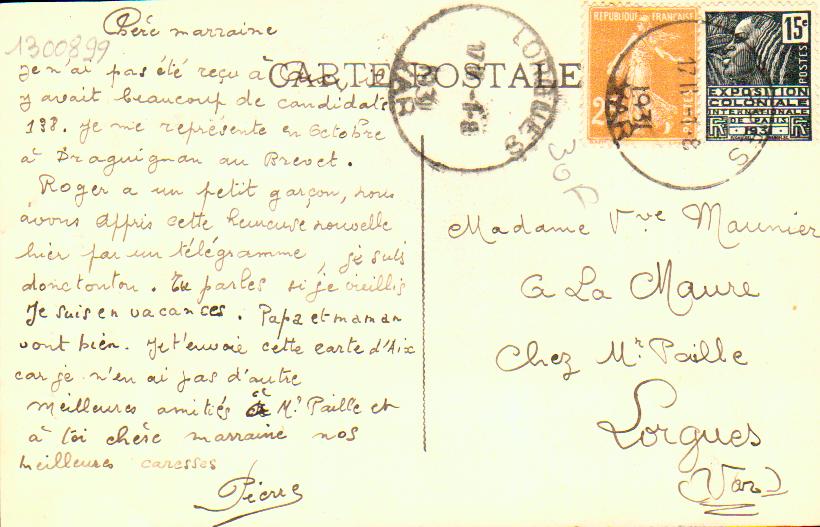 Chère marraine
1300899
CARTE POSTALE
je n'ai pas été reçu à
y avait beaucoup de candidats
138. Je me représente en Octobre
à Draguignan au Brevet.
Roger a un petit garçon, nous
avons appris cette heureuse nouvelle
hier par un télégramme, je suis
donc tonton. Tu parles si je vieillis
Je suis en vacances. Papa et maman
vont bien. Je t'envoie cette carte d'Aix
car je n'en ai pas d'autre
meilleures amitiés à Mr Paille et
à toi chère marraine nos
meilleures caresses
Pierre
LORGUES
1931
VAR
30F
REPUBLIQUE FRANÇAISE
POSTES
1931
VAR
15c
POSTES
EXPOSITION
COLONIALE
INTERNATIONALE
DE PARIS
1931
Madame Vve Maunier
A La Maure
Chez Mr Paille
Lorgues
(Var)